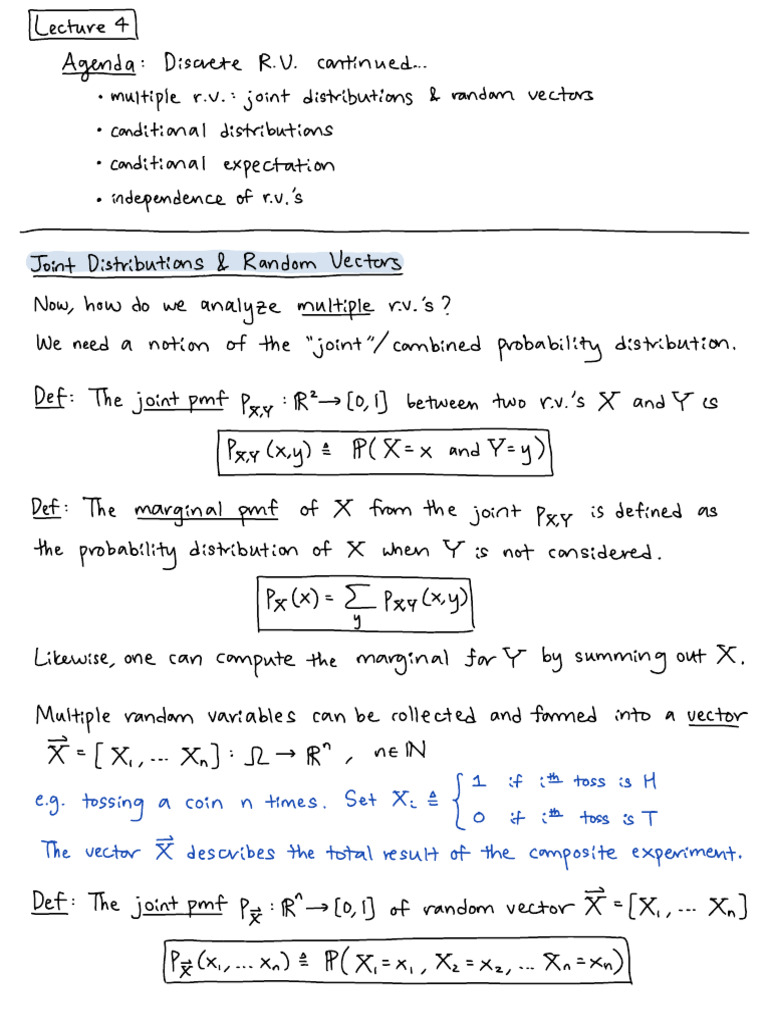 Lecture 4
Agenda: Discrete R.V. continued...
• multiple r.v.: joint distributions & random vectors
• conditional distributions
• conditional expectation
• independence of r.v.'s
Joint Distributions & Random Vectors
Now, how do we analyze multiple r.v.'s?
We need a notion of the "joint"/combined probability distribution.
Def: The joint pmf P_{X,Y} : ℝ² → [0,1] between two r.v.'s X and Y is
P_{X,Y}(x,y) ≜ ℙ(X=x and Y=y)
Def: The marginal pmf of X from the joint P_{X,Y} is defined as
the probability distribution of X when Y is not considered.
P_X(x) = Σ_y P_{XY}(x,y)
Likewise, one can compute the marginal for Y by summing out X.
Multiple random variables can be collected and formed into a vector
X⃗ = [X₁, ... Xₙ] : Ω → ℝⁿ, n∈ℕ
e.g. tossing a coin n times. Set Xᵢ ≜ { 1 if iᵗʰ toss is H
0 if iᵗʰ toss is T
The vector X⃗ describes the total result of the composite experiment.
Def: The joint pmf P_X⃗ : ℝⁿ → [0,1] of random vector X⃗ = [X₁, ... Xₙ]
P_X⃗(x₁, ... xₙ) ≜ ℙ(X₁=x₁, X₂=x₂, ... Xₙ=xₙ)